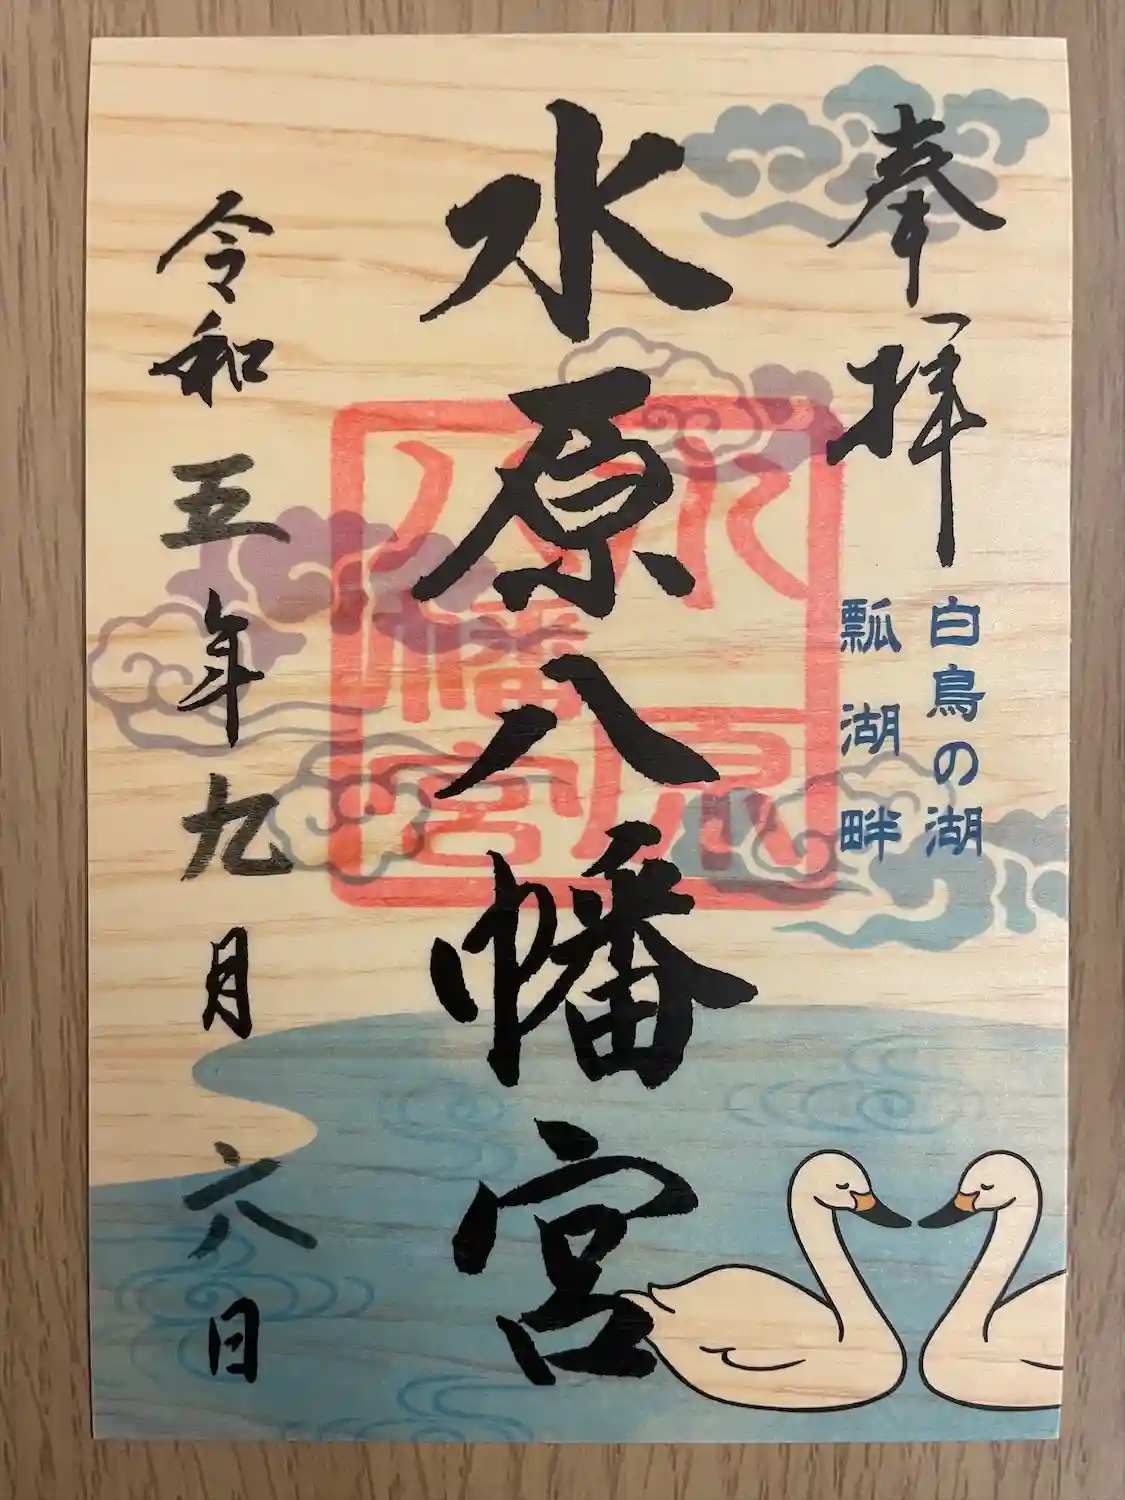 奉拝
白鳥の湖
瓢湖畔
水原八幡宮
水原
八幡宮
令和五年九月六日